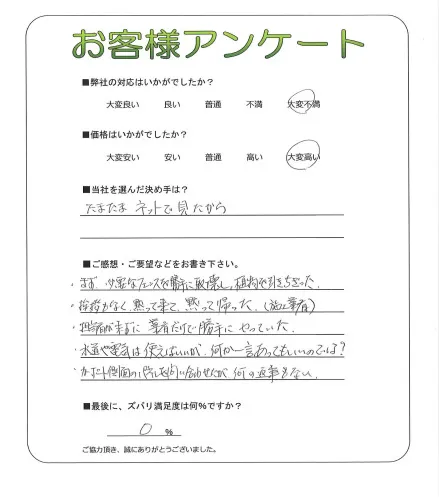 お客様アンケート
■弊社の対応はいかがでしたか？
大変良い 良い 普通 不満 大変不満
■価格はいかがでしたか？
大変安い 安い 普通 高い 大変高い
■当社を選んだ決め手は？
たまたま ネットで見たから
■ご感想・ご要望などをお書き下さい。
・まず、必要なフェンスを勝手に破壊し、植物を引きちぎった。
・挨拶がなく、黙って来て、黙って帰った。(施工業者)
・担当者が来ずに 業者だけで勝手に やっていた。
・水道や電気は使えばいいが、何か一言あってもいいのでは？
・カーポート側面の 問い合わせたが 何の返事もない。
■最後に、ズバリ満足度は何％ですか？
0 ％
ご協力頂き、誠にありがとうございました。